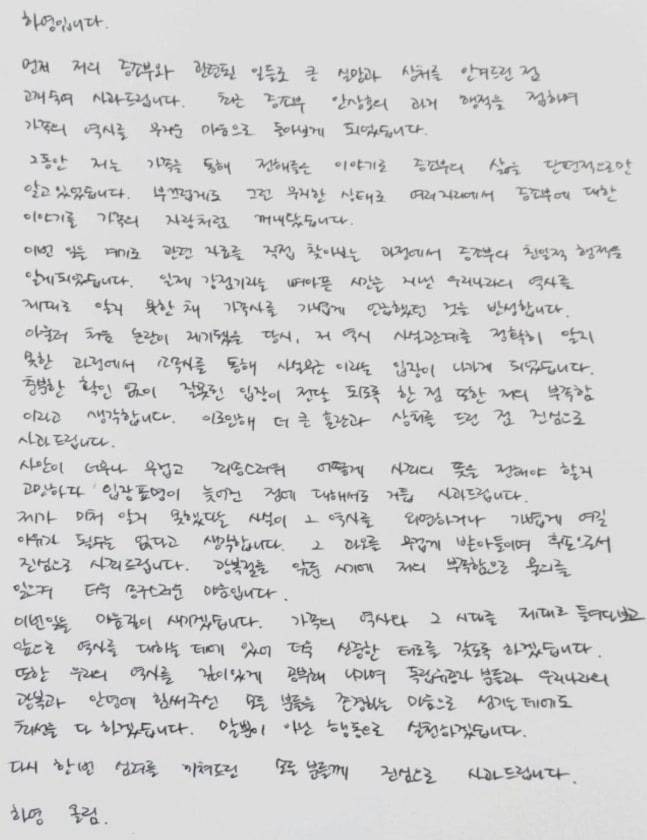 하영입니다.
먼저 저의 증조부와 관련된 일들로 큰 실망과 상처를 안겨드린 점
고개숙여 사과드립니다. 최근 증조부 안상호의 과거 행적을 접하며
가족의 역사를 무거운 마음으로 돌아보게 되었습니다.
그동안 저는 가족을 통해 전해들은 이야기로 증조부의 삶을 단편적으로만
알고있었습니다. 부끄럽게도 그런 무지한 상태로 여러자리에서 증조부에 대한
이야기를 가족의 자랑처럼 꺼내왔습니다.
이번 일을 계기로 관련 자료를 직접 찾아보는 과정에서 증조부의 친일적 행적을
알게되었습니다. 일제 강점기라는 뼈아픈 시간을 지낸 우리나라의 역사를
제대로 알지 못한 채 가족사를 가볍게 언급했던 것을 반성합니다.
아울러 처음 논란이 제기됐을 당시, 저 역시 사실관계를 정확히 알지
못한 과정에서 소속사를 통해 사실무근 이라는 입장이 나가게 되었습니다.
충분한 확인 없이 잘못된 입장이 전달 되도록 한 점 또한 저의 부족함
이라고 생각합니다. 이로인해 더 큰 혼란과 상처를 드린 점 진심으로
사과드립니다.
사안이 너무나 무겁고 죄송스러워 어떻게 사죄의 뜻을 전해야 할지
고민하다 입장표명이 늦어진 점에 대해서도 거듭 사과드립니다.
제가 미처 알지 못했다는 사실이 그 역사를 외면하거나 가볍게 여길
이유가 될수는 없다고 생각합니다. 그 과오를 무겁게 받아들이며 후손으로서
진심으로 사죄드립니다. 광복절을 앞둔 시기에 저의 부족함으로 물의를
일으켜 더욱 송구스러운 마음입니다.
이번일을 마음깊이 새기겠습니다. 가족의 역사와 그 시대를 제대로 들여다보고
앞으로 역사를 대하는 데에 있어 더욱 신중한 태도를 갖도록 하겠습니다.
또한 우리의 역사를 깊이있게 공부해 나가며 독립유공자 분들과 우리나라의
광복과 안녕에 힘써주신 모든 분들을 존경하는 마음으로 섬기는데에도
최선을 다 하겠습니다. 말뿐이 아닌 행동으로 실천하겠습니다.
다시 한번 심려를 끼쳐드린 모든 분들께 진심으로 사과드립니다.
하영 올림.